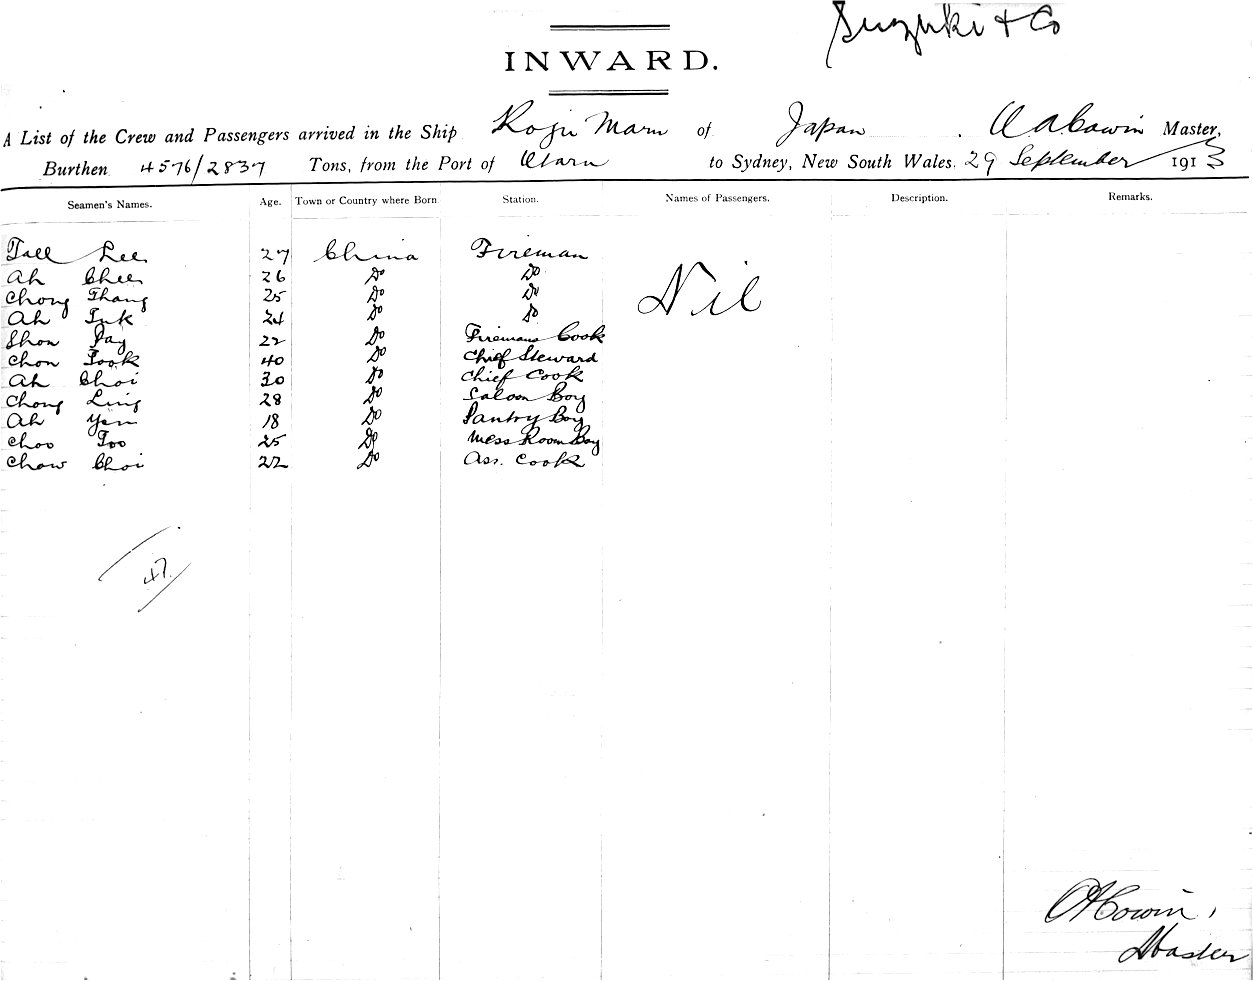 Suzuki & Co
INWARD.
A List of the Crew and Passengers arrived in the Ship Koju Maru of Japan. Cowin Master,
Burthen 4576/2837 Tons, from the Port of Otaru to Sydney, New South Wales. 29 September 1913
Seamen's Names. Age. Town or Country where Born. Station. Names of Passengers. Description. Remarks.
Lee 27 China Fireman
Ah Chee 26 Do Do
Chong Thang 25 Do Do
Ah 24 Do Do
Nil
22 Do Firemans Cook
Chon Took 40 Do Chief Steward
Ah Choi 30 Do Chief Cook
Chong Ling 28 Do Saloon Boy
Ah Yen 18 Do Pantry Boy
Choo Too 25 Do Mess Room Boy
Chow Choi 22 Do Ass. Cook
47.
Cowin,
Master